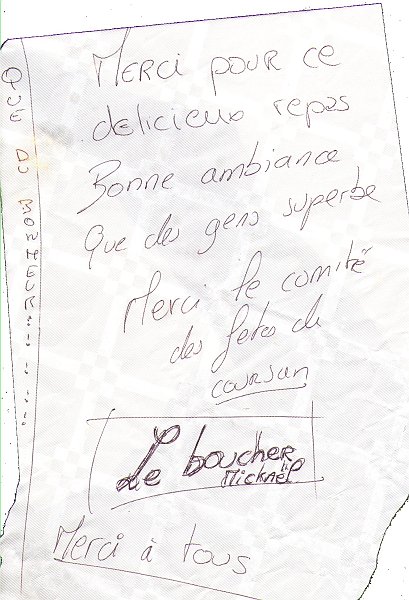 Merci pour ce
delicieux repas
Bonne ambiance
Que des gens superbe
Merci le comité
des fetes de
coursan
Le boucher
Mickaël
Merci à tous
QUE DU BONHEUR!!...